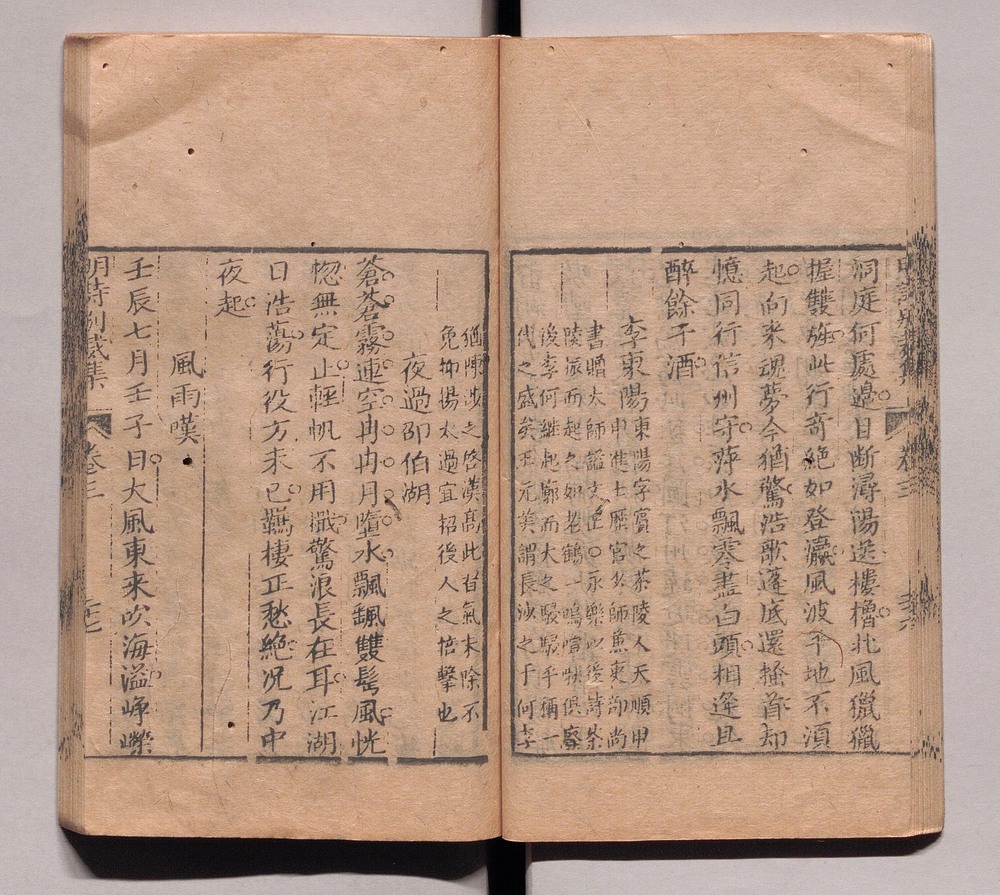 洞庭何處邊目斷潯陽送樓櫓北風獵獵
握雙旌此行奇絕如登瀛風波平地不須
起向來魂夢今猶驚浩歌蓬底還搔首却
憶同行信州守萍水飄零盡白頭相逢且
醉餘干酒
李東陽東陽字賓之茶陵人天順甲
申進士歷官少師兼吏部尚
書贈太師諡文正○永樂以後詩茶
陵振而起之如老鶴一鳴喧啾俱廢
後李何繼起廓而大之駸駸乎稱一
代之盛矣王元美謂長沙之于何李
猶陳涉之啓漢高此習氣未除不
免抑揚太過宜招後人之掊擊也
夜過邵伯湖
蒼蒼霧連空冉冉月墮水飄飄雙髩風恍
惚無定止輕帆不用檝驚浪長在耳江湖
日浩蕩行役方未已羈棲正愁絕況乃中
夜起
風雨嘆
壬辰七月壬子日大風東來吹海溢崢嶸
明詩別裁集
卷三